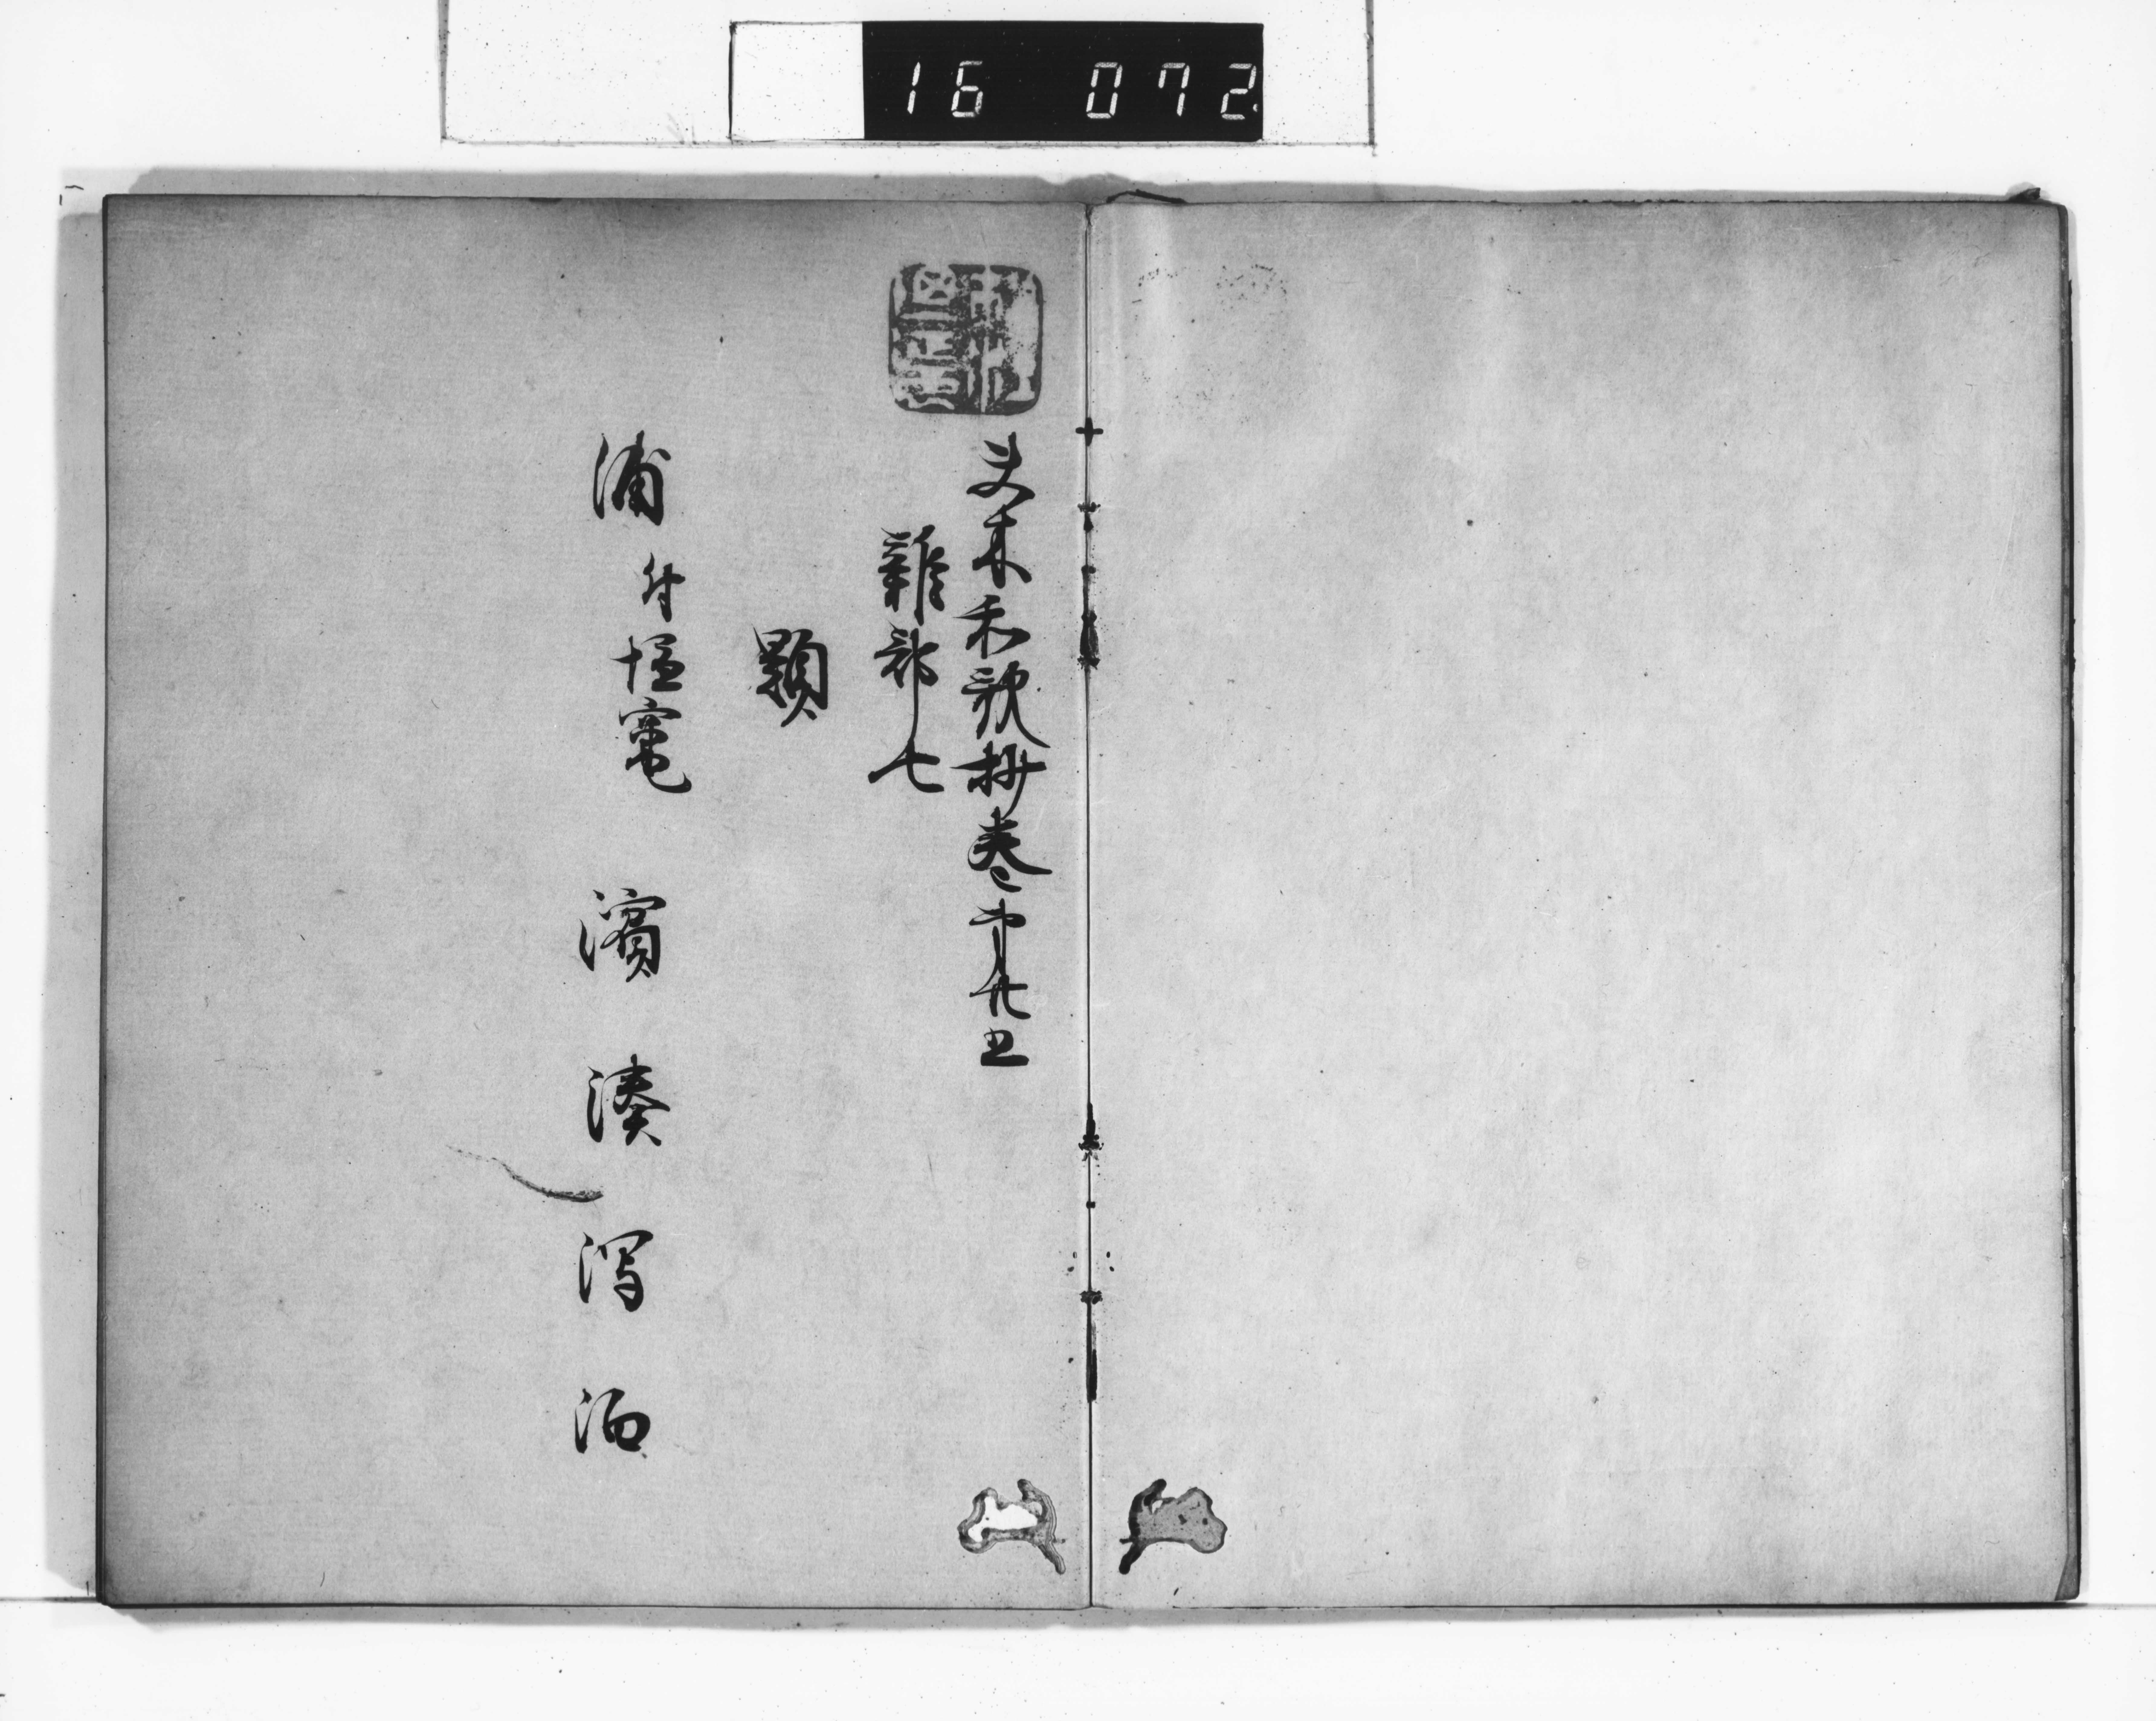 16 072
夫木和歌抄巻第廿五
雜部七
題
浦 付塩竈 濱 湊 潟 泊